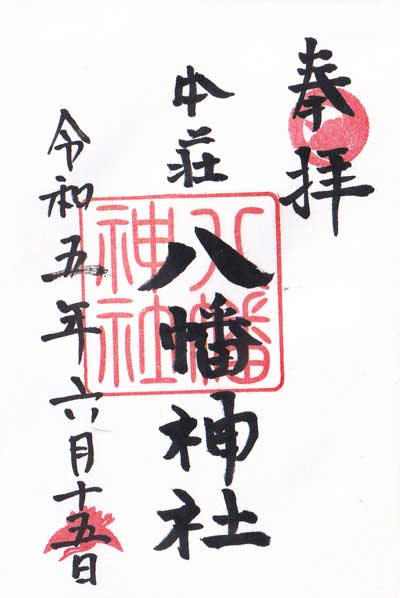 奉拝
本荘
八幡神社
八幡神社
令和五年六月十五日